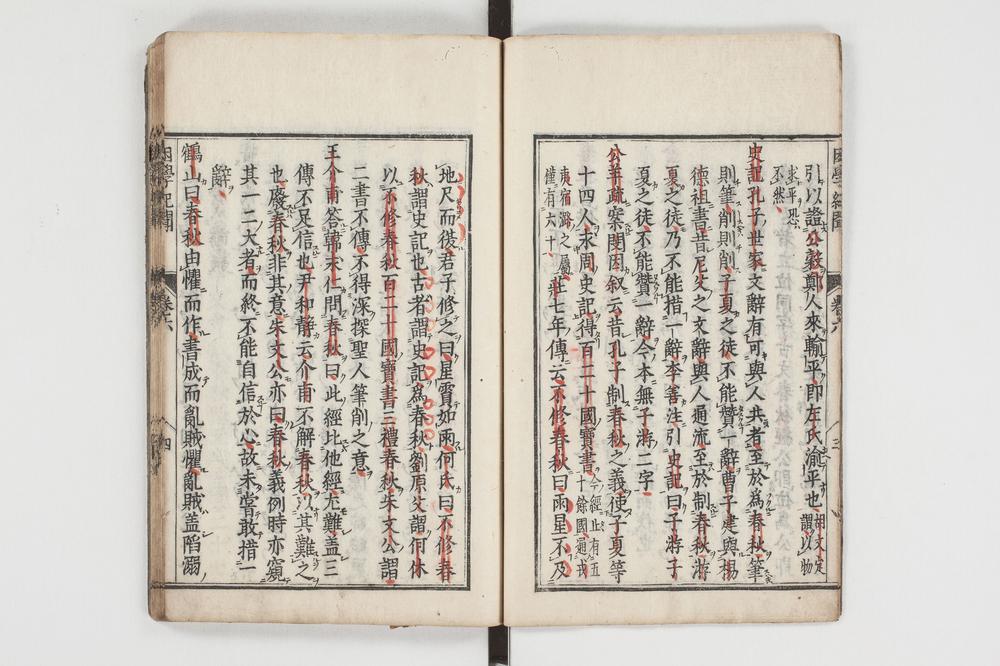 引以證公穀鄭人來輸平即左氏渝平也胡文定謂以物
求平恐
不然
史記孔子世家文辭有可與人共者至於為春秋筆
則筆削則削子夏之徒不能贊一辭曹子建與楊
德祖書昔尼父之文辭與人通流至於制春秋游
夏之徒乃不能措一辭李善注引史記曰子游子
夏之徒不能贊一辭今本無子游二字
公羊疏案閔因叙云昔孔子制春秋之義使子夏等
十四人求周史記得百二十國寶書今經止有五
十餘國通戎
夷宿潞之屬
僅有六十
莊七年傳云不修春秋曰雨星不及
地尺而復君子修之曰星霣如雨何氏曰不修春
秋謂史記也古者謂史記為春秋劉原父謂何休
以不修春秋百二十國寶書三禮春秋朱文公謂
二書不傳不得深探聖人筆削之意
王介甫答韓求仁問春秋曰此經比他經尤難蓋三
傳不足信也尹和靜云介甫不解春秋以其難之
也廢春秋非其意朱文公亦曰春秋義例時亦窺
其一二大者而終不能自信於心故未嘗敢措一
辭
鶴山曰春秋由懼而作書成而亂賊懼亂賊蓋陷溺
困學紀聞
卷六
四
困學紀聞
卷六
三